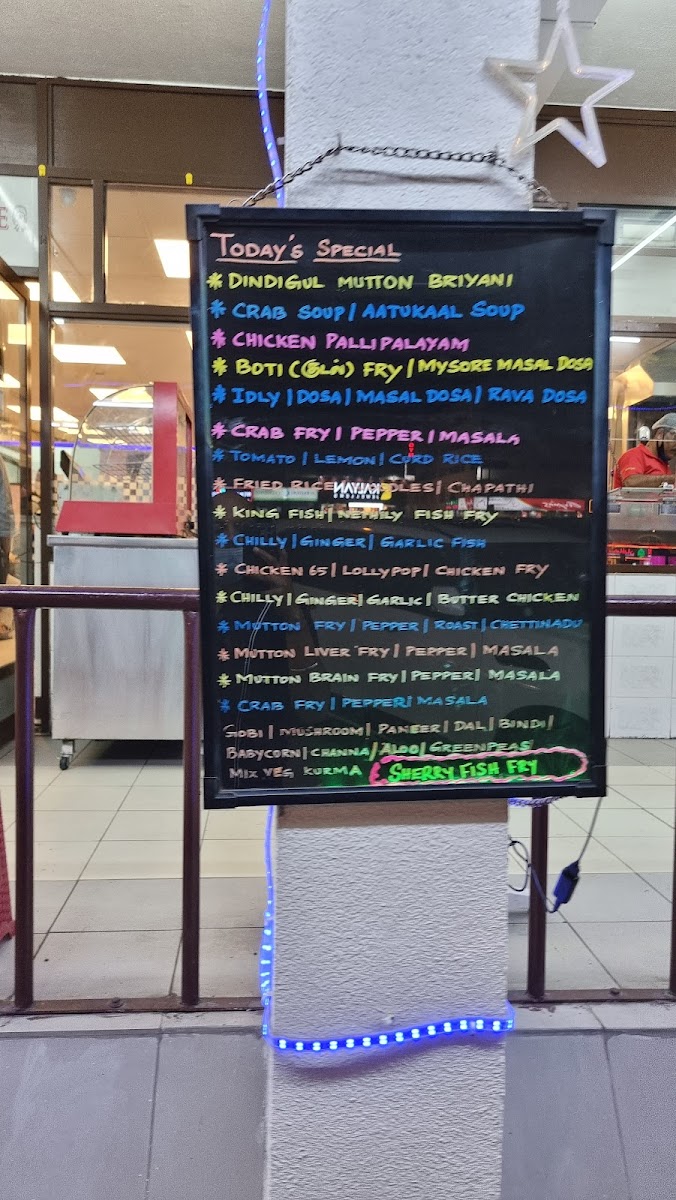 TODAY'S SPECIAL
* DINDIGUL MUTTON BRIYANI
* CRAB SOUP | AATUKAAL SOUP
* CHICKEN PALLIPALAYAM
* BOTI (குடல்) FRY | MYSORE MASAL DOSA
* IDLY | DOSA | MASAL DOSA | RAVA DOSA
* CRAB FRY | PEPPER | MASALA
* TOMATO | LEMON | CURD RICE
* FRIED RICE | NOODLES | CHAPATHI
* KING FISH | NETHILY FISH FRY
* CHILLY | GINGER | GARLIC FISH
* CHICKEN 65 | LOLLYPOP | CHICKEN FRY
* CHILLY | GINGER | GARLIC | BUTTER CHICKEN
* MUTTON FRY | PEPPER | ROAST | CHETTINADU
* MUTTON LIVER FRY | PEPPER | MASALA
* MUTTON BRAIN FRY | PEPPER | MASALA
* CRAB FRY | PEPPER | MASALA
GOBI | MUSHROOM | PANEER | DAL | BINDI |
BABYCORN | CHANNA | ALOO | GREENPEAS
MIX VEG KURMA SHERRY FISH FRY